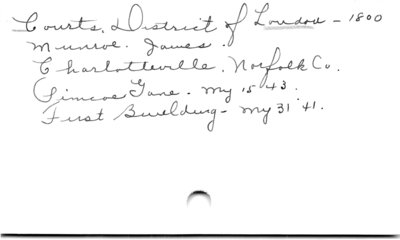 Courts, District of London - 1800
Munroe. James.
Charlotteville. Norfolk Co.
Simcoe Gane. my 15 43.
First Buulding - my 31 '41.